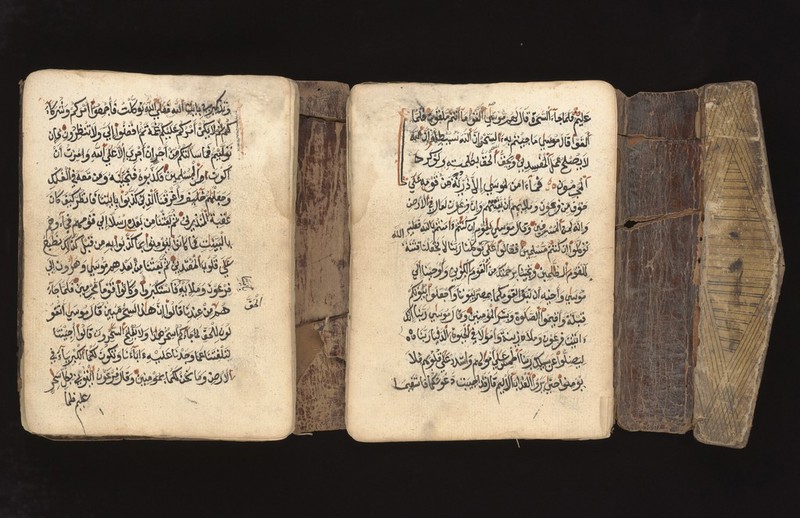 وتذكيري بايت الله فعلى الله توكلت فاجمعوا امركم وشركاء
كم ثم لا يكن امركم عليكم غمة ثم اقضوا الي ولا تنظرون فان
توليتم فما سالتكم من اجر ان اجري الا على الله وامرت ان
اكون من المسلمين فكذبوه فنجينه ومن معه في الفلك
وجعلنهم خليف واغرقنا الذين كذبوا بايتنا فانظر كيف كان
عقبة المنذرين ثم بعثنا من بعده رسلا الى قومهم فجاوهم
بالبينت فما كانوا ليومنوا بما كذبوا به من قبل كذلك نطبع
على قلوب المعتدين ثم بعثنا من بعدهم موسى وهرون الى
فرعون وملايه بايتنا فاستكبروا وكانوا قوما مجرمين فلما جاء
هم الحق من عندنا قالوا ان هذا لسحر مبين قال موسى اتقو
لون للحق لما جاءكم اسحر هذا ولا يفلح السحرون قالوا اجيتنا
لتلفتنا عما وجدنا عليه اباءنا وتكون لكما الكبرياء في
الارض وما نحن لكما بمومنين وقال فرعون ايتوني بكل سحر
عليم فلما
عليم فلما جاء السحرة قال لهم موسى القوا ما انتم ملقون فلما
القوا قال موسى ما جيتم به السحر ان الله سيبطله ان الله
لا يصلح عمل المفسدين ويحق الله الحق بكلمته ولو كره
المجرمون فما امن لموسى الا ذرية من قومه على
خوف من فرعون وملايهم ان يفتنهم وان فرعون لعال في الارض
وانه لمن المسرفين وقال موسى يقوم ان كنتم امنتم بالله فعليه
توكلوا ان كنتم مسلمين فقالوا على الله توكلنا ربنا لا تجعلنا فتنة
للقوم الظلمين ونجنا برحمتك من القوم الكفرين واوحينا الى
موسى واخيه ان تبوا لقومكما بمصر بيوتا واجعلوا بيوتكم
قبلة واقيموا الصلوة وبشر المومنين وقال موسى ربنا انك
اتيت فرعون وملاه زينة واموالا في الحيوة الدنيا ربنا
ليضلوا عن سبيلك ربنا اطمس على امولهم واشدد على قلوبهم فلا
يومنوا حتى يروا العذاب الاليم قال قد اجيبت دعوتكما فاستقيما